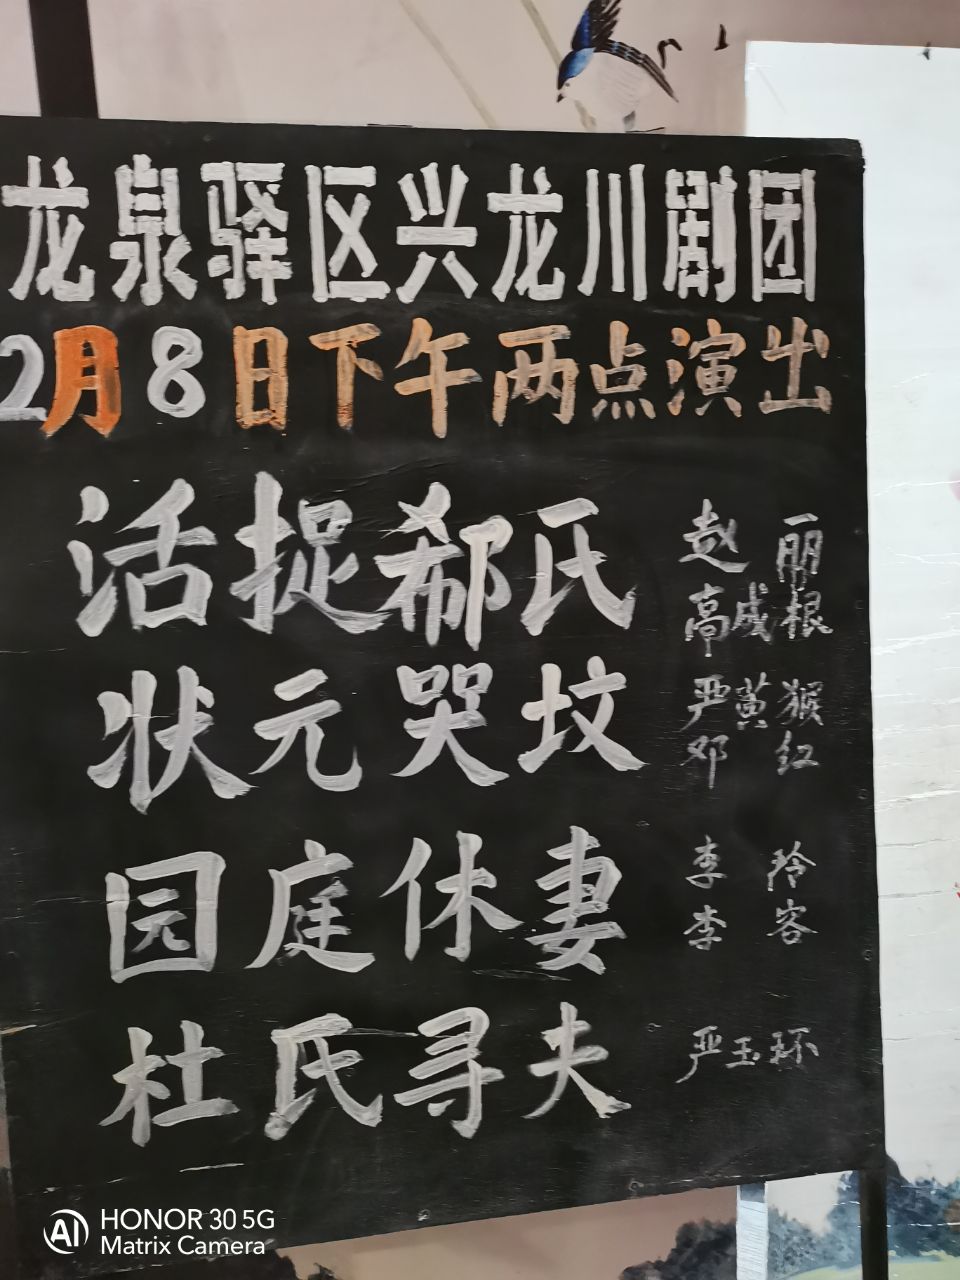 龙泉驿区兴龙川剧团
2月8日下午两点演出
活捉郗氏 赵丽
高成根
状元哭坟 严黄猴
邓红
园庭休妻 李玲
李容
杜氏寻夫 严玉环
HONOR 30 5G
Matrix Camera